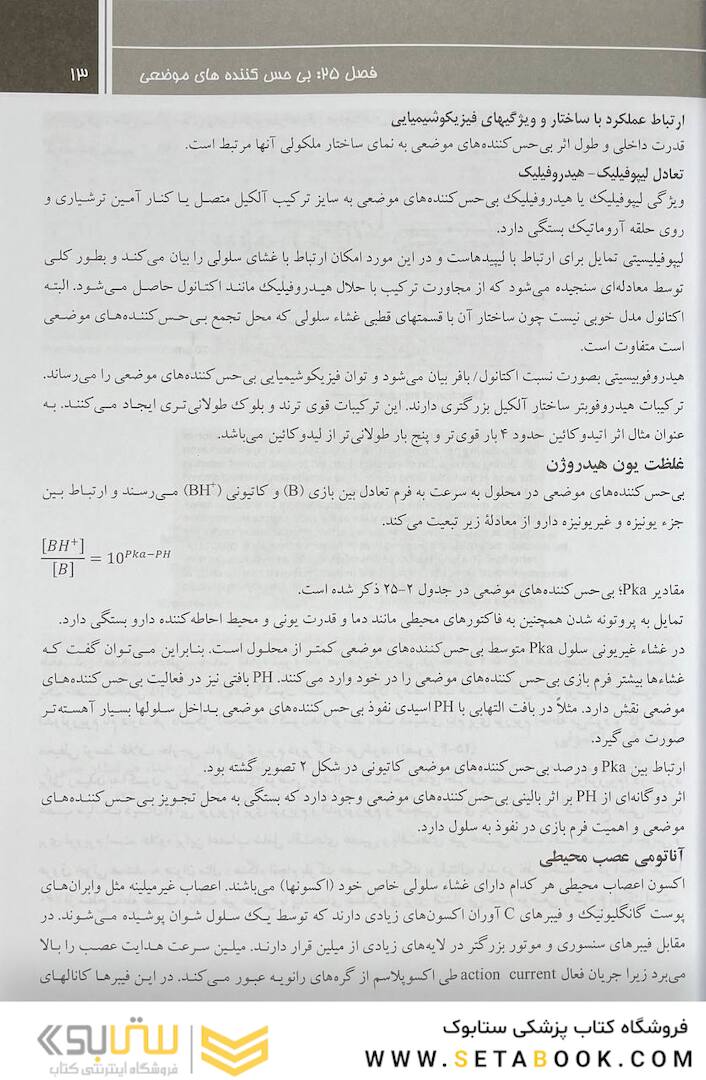 فصل ۲۵: بی حس کننده های موضعی
۱۳
ارتباط عملکرد با ساختار و ویژگیهای فیزیکوشیمیایی
قدرت داخلی و طول اثر بی‌حس‌کننده‌های موضعی به نمای ساختار ملکولی آنها مرتبط است.
تعادل لیپوفیلیک- هیدروفیلیک
ویژگی لیپوفیلیک یا هیدروفیلیک بی‌حس‌کننده‌های موضعی به سایز ترکیب آلکیل متصل یا کنار آمین ترشیاری و
روی حلقه آروماتیک بستگی دارد.
لیپوفیلیسیتی تمایل برای ارتباط با لیپیدهاست و در این مورد امکان ارتباط با غشای سلولی را بیان می‌کند و بطور کلی
توسط معادله‌ای سنجیده می‌شود که از مجاورت ترکیب با حلال هیدروفیلیک مانند اکتانول حاصل می‌شود. البته
اکتانول مدل خوبی نیست چون ساختار آن با قسمتهای قطبی غشاء سلولی که محل تجمع بی‌حس‌کننده‌های موضعی
است متفاوت است.
هیدروفوبیسیتی بصورت نسبت اکتانول/ بافر بیان می‌شود و توان فیزیکوشیمیایی بی‌حس‌کننده‌های موضعی را می‌رساند.
ترکیبات هیدروفوبتر ساختار آلکیل بزرگتری دارند. این ترکیبات قوی ترند و بلوک طولانی‌تری ایجاد می‌کنند. به
عنوان مثال اثر اتیدوکائین حدود ۴ بار قوی‌تر و پنج بار طولانی‌تر از لیدوکائین می‌باشد.
غلظت یون هیدروژن
بی‌حس‌کننده‌های موضعی در محلول به سرعت به فرم تعادل بین بازی (B) و کاتیونی (BH⁺) می‌رسند و ارتباط بین
جزء یونیزه و غیریونیزه دارو از معادلهٔ زیر تبعیت می‌کند.
[BH+]/[B] = 10^(Pka−PH)
مقادیر Pka؛ بی‌حس‌کننده‌های موضعی در جدول ۲-۲۵ ذکر شده است.
تمایل به پروتونه شدن همچنین به فاکتورهای محیطی مانند دما و قدرت یونی و محیط احاطه‌کننده دارو بستگی دارد.
در غشاء غیریونی سلول Pka متوسط بی‌حس‌کننده‌های موضعی کمتر از محلول است. بنابراین می‌توان گفت که
غشاءها بیشتر فرم بازی بی‌حس کننده‌های موضعی را در خود وارد می‌کنند. PH بافتی نیز در فعالیت بی‌حس‌کننده‌های
موضعی نقش دارد. مثلاً در بافت التهابی با PH اسیدی نفوذ بی‌حس‌کننده‌های موضعی بداخل سلولها بسیار آهسته‌تر
صورت می‌گیرد.
ارتباط بین Pka و درصد بی‌حس‌کننده‌های موضعی کاتیونی در شکل ۲ تصویر گشته بود.
اثر دوگانه‌ای از PH بر اثر بالینی بی‌حس‌کننده‌های موضعی وجود دارد که بستگی به محل تجویز بی‌حس‌کننده‌های
موضعی و اهمیت فرم بازی در نفوذ به سلول دارد.
آناتومی عصب محیطی
اکسون اعصاب محیطی هر کدام دارای غشاء سلولی خاص خود (اکسونها) می‌باشند. اعصاب غیرمیلینه مثل وابران‌های
پوست گانگلیونیک و فیبرهای C آوران اکسون‌های زیادی دارند که توسط یک سلول شوان پوشیده می‌شوند. در
مقابل فیبرهای سنسوری و موتور بزرگتر در لایه‌های زیادی از میلین قرار دارند. میلین سرعت هدایت عصب را بالا
می‌برد زیرا جریان فعال action current طی اکسوپلاسم از گره‌های رانویه عبور می‌کند. در این فیبرها کانالهای
فروشگاه کتاب پزشکی ستابوک
WWW.SETABOOK.COM
ستابوک
فروشگاه اینترنتی کتاب